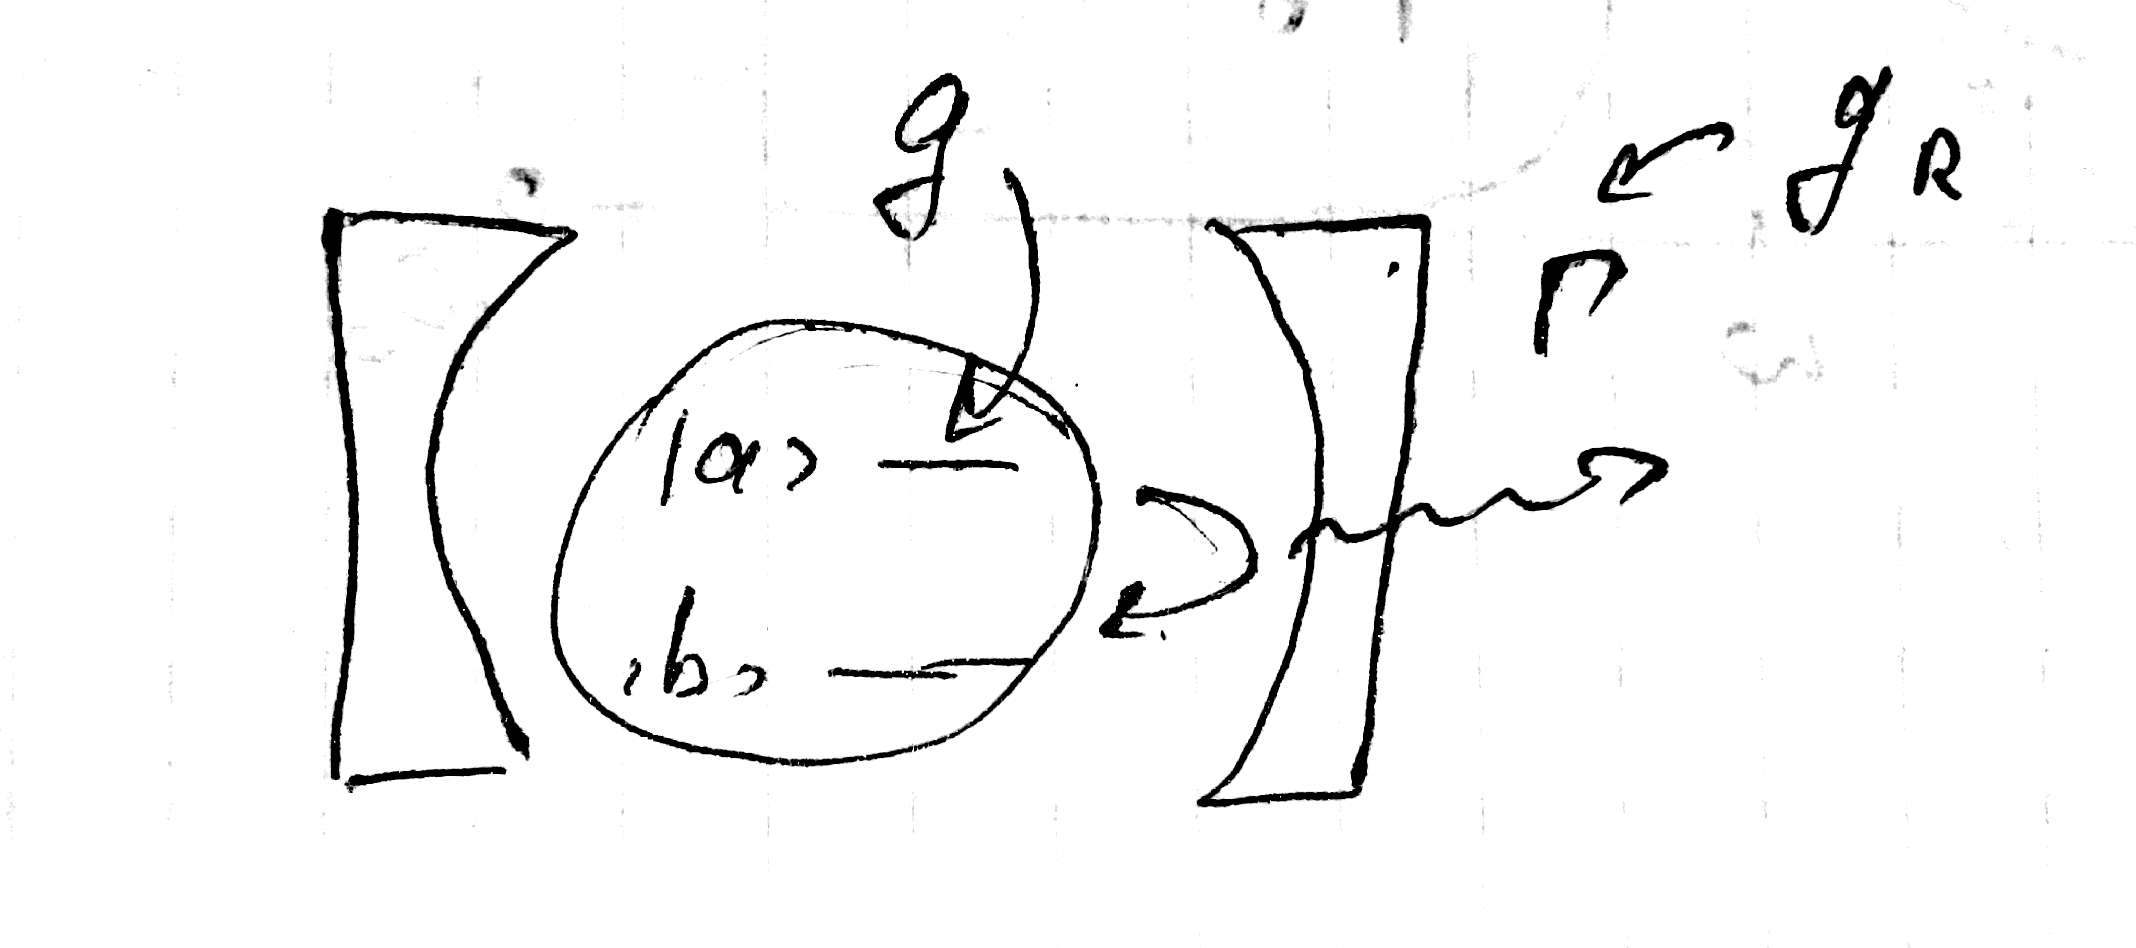 g
g_R
|a>
|b>